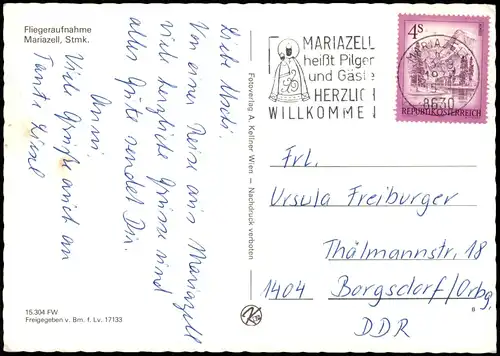 Fliegeraufnahme
Mariazell, Stmk.
Liebe Uschi.
Von einer Reise aus Mariazell
viele herzliche Grüsse und
alles Gute sendet Dir.
Anni.
Viele Grüße auch an
Tante Liesl
15.304 FW
Freigegeben v. Bm. f. Lv. 17133
Fotoverlag A. Kellner Wien – Nachdruck verboten
MARIAZELL
heißt Pilger
und Gäste
HERZLICH
WILLKOMMEN
8630
4S
REPUBLIK ÖSTERREICH
Frl.
Ursula Freiburger
Thälmannstr. 18
1404 Borgsdorf/Orbg.
DDR
B